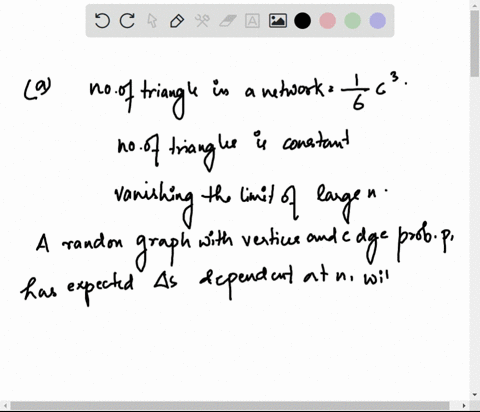 (a) no. of triangle in a network = 1/6 c³.
no. of triangles is constant
vanishing the limit of large n.
A randon graph with vertice and edge prob. p,
has expected Δs dependent at n, wil